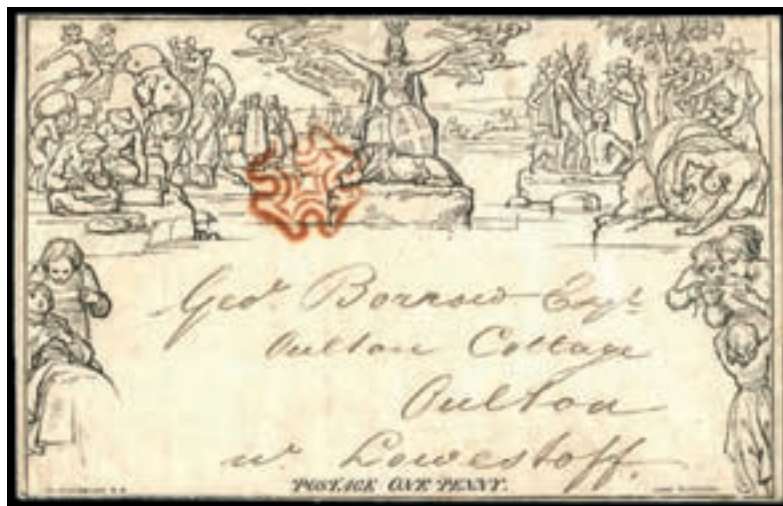 Geoe. Borrow Esqr.
Oulton Cottage
Oulton
nr Lowestoff.
POSTAGE ONE PENNY.